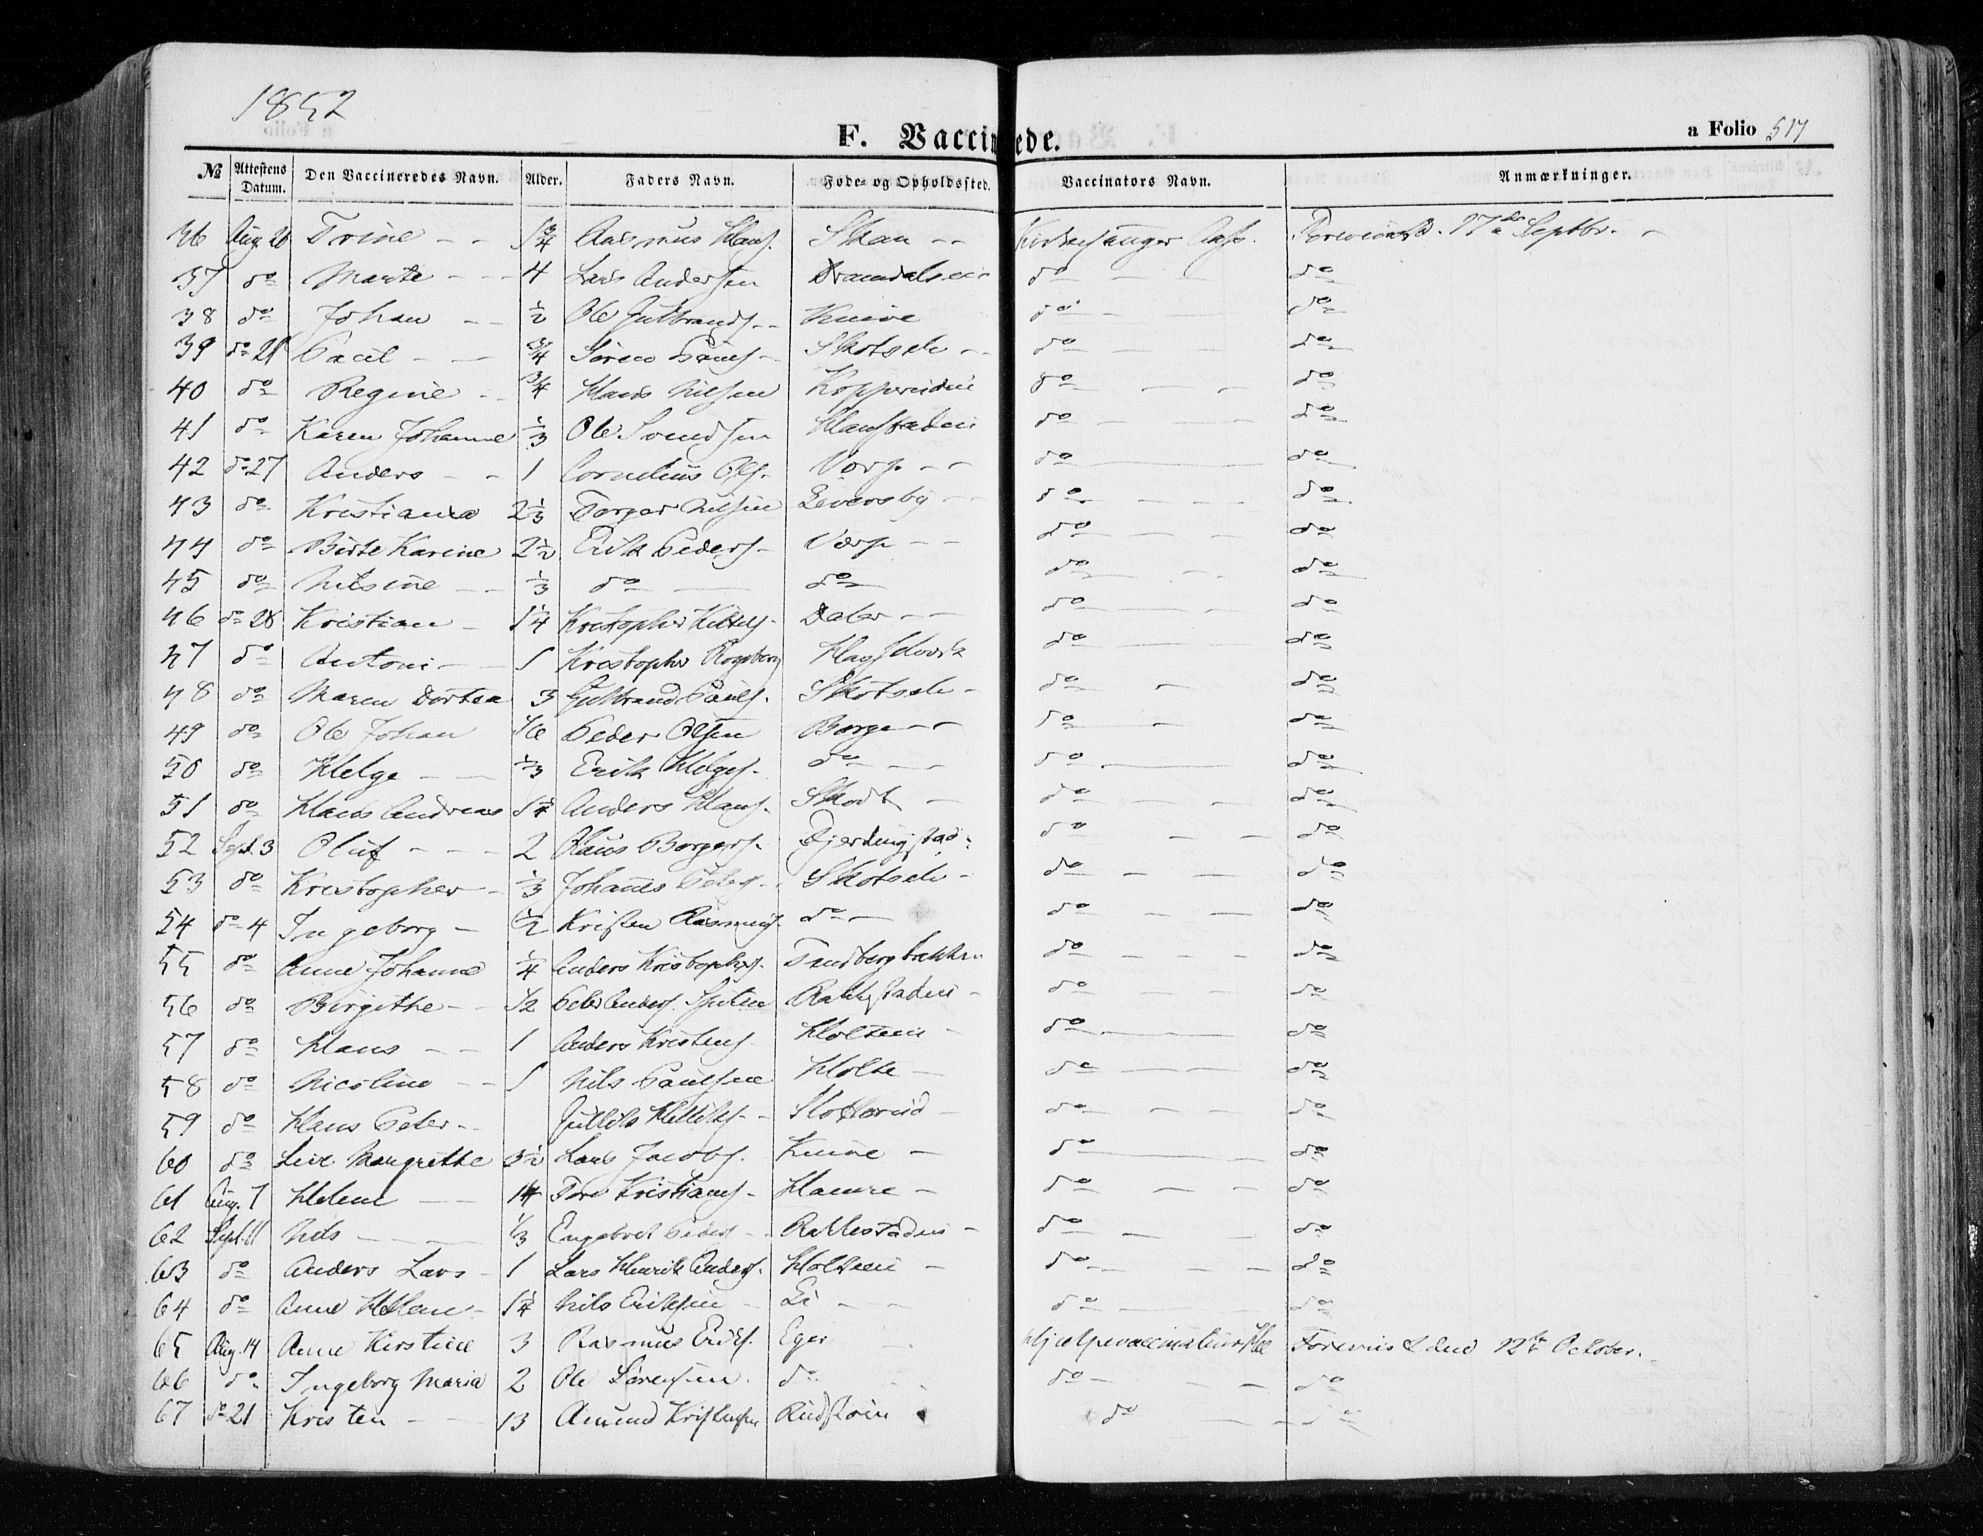 1852
F. Vaccinerede.
a Folio 517
№ Attestens Datum. Den Vaccineredes Navn. Alder. Faders Navn. Føde- og Opholdssted. Vaccinators Navn. Anmærkninger.
36 Aug. 26 Trine 1 3/4 Rasmus Hans. Skau Kirkesanger 17de Septbr.
37 do Marte 4 Lars Andersen do do
38 do Johan 1/2 Ole Gulbrands. Knive do do
39 do 21 Paul 3/4 Søren Pauls. Skotsele do do
40 do Regine 3/4 Hans Nilsen Kopperuden do do
41 do Karen Johanne 1/3 Ole Svendsen do do
42 do 27 Anders 1 Cornelius Ols. Vorp do do
43 do Kristiana 2 1/3 Torger Nilsen do do
44 do Birte Karine 2 1/2 Erik Peders. Vorp do do
45 do Nilsine 1/3 do do do do
46 do 28 Kristian 1 1/4 Kristopher Dalen do do
47 do Antoni 1 Kristopher do do
48 do Maren Dortea 3 Gulbrand Pauls. Skotsele do do
49 do Ole Johan 1/6 Peder Olsen Borge do do
50 do Helge 1/3 Erik Helges. do do do
51 do Hans Andreas 1 1/4 Anders Hans. Skodt do do
52 Sept. 3 Oluf 2 Olaus Borgers. do do
53 do Kristopher 1/3 Johannes Peters. Skotsele do do
54 do 4 Ingeborg 1/2 Kristen Rasmus. do do do
55 do Anne Johanne 1/4 Anders Kristophers. do do
56 do Birgithe 1/2 Peder Anders. Rakkestaden do do
57 do Hans 1 Anders Kristens. Holtein do do
58 do Nicoline 1 Nils Paulsen Holte do do
59 do Hans Peter do do
60 do Live Margrethe 3 1/2 Lars Jacobs. Knive do do
61 Aug. 7 Helene 14 Tore Kristians. Hamre do do
62 Sept. 11 Nils 1/3 Engebret Peders. Rakkestaden do do
63 do Anders Lars 1 Lars Henrik Anders. Holtein do do
64 do Anne Helene 1 1/4 Nils Eriksen do do
65 Aug. 14 Anne Kirstine 3 Rasmus Eriks. Eger Hjelpevaccinateur den 12te October.
66 do Ingeborg Maria 2 Ole Sørensen do do do
67 do 21 Kristen 13 Amund Kristensen do do